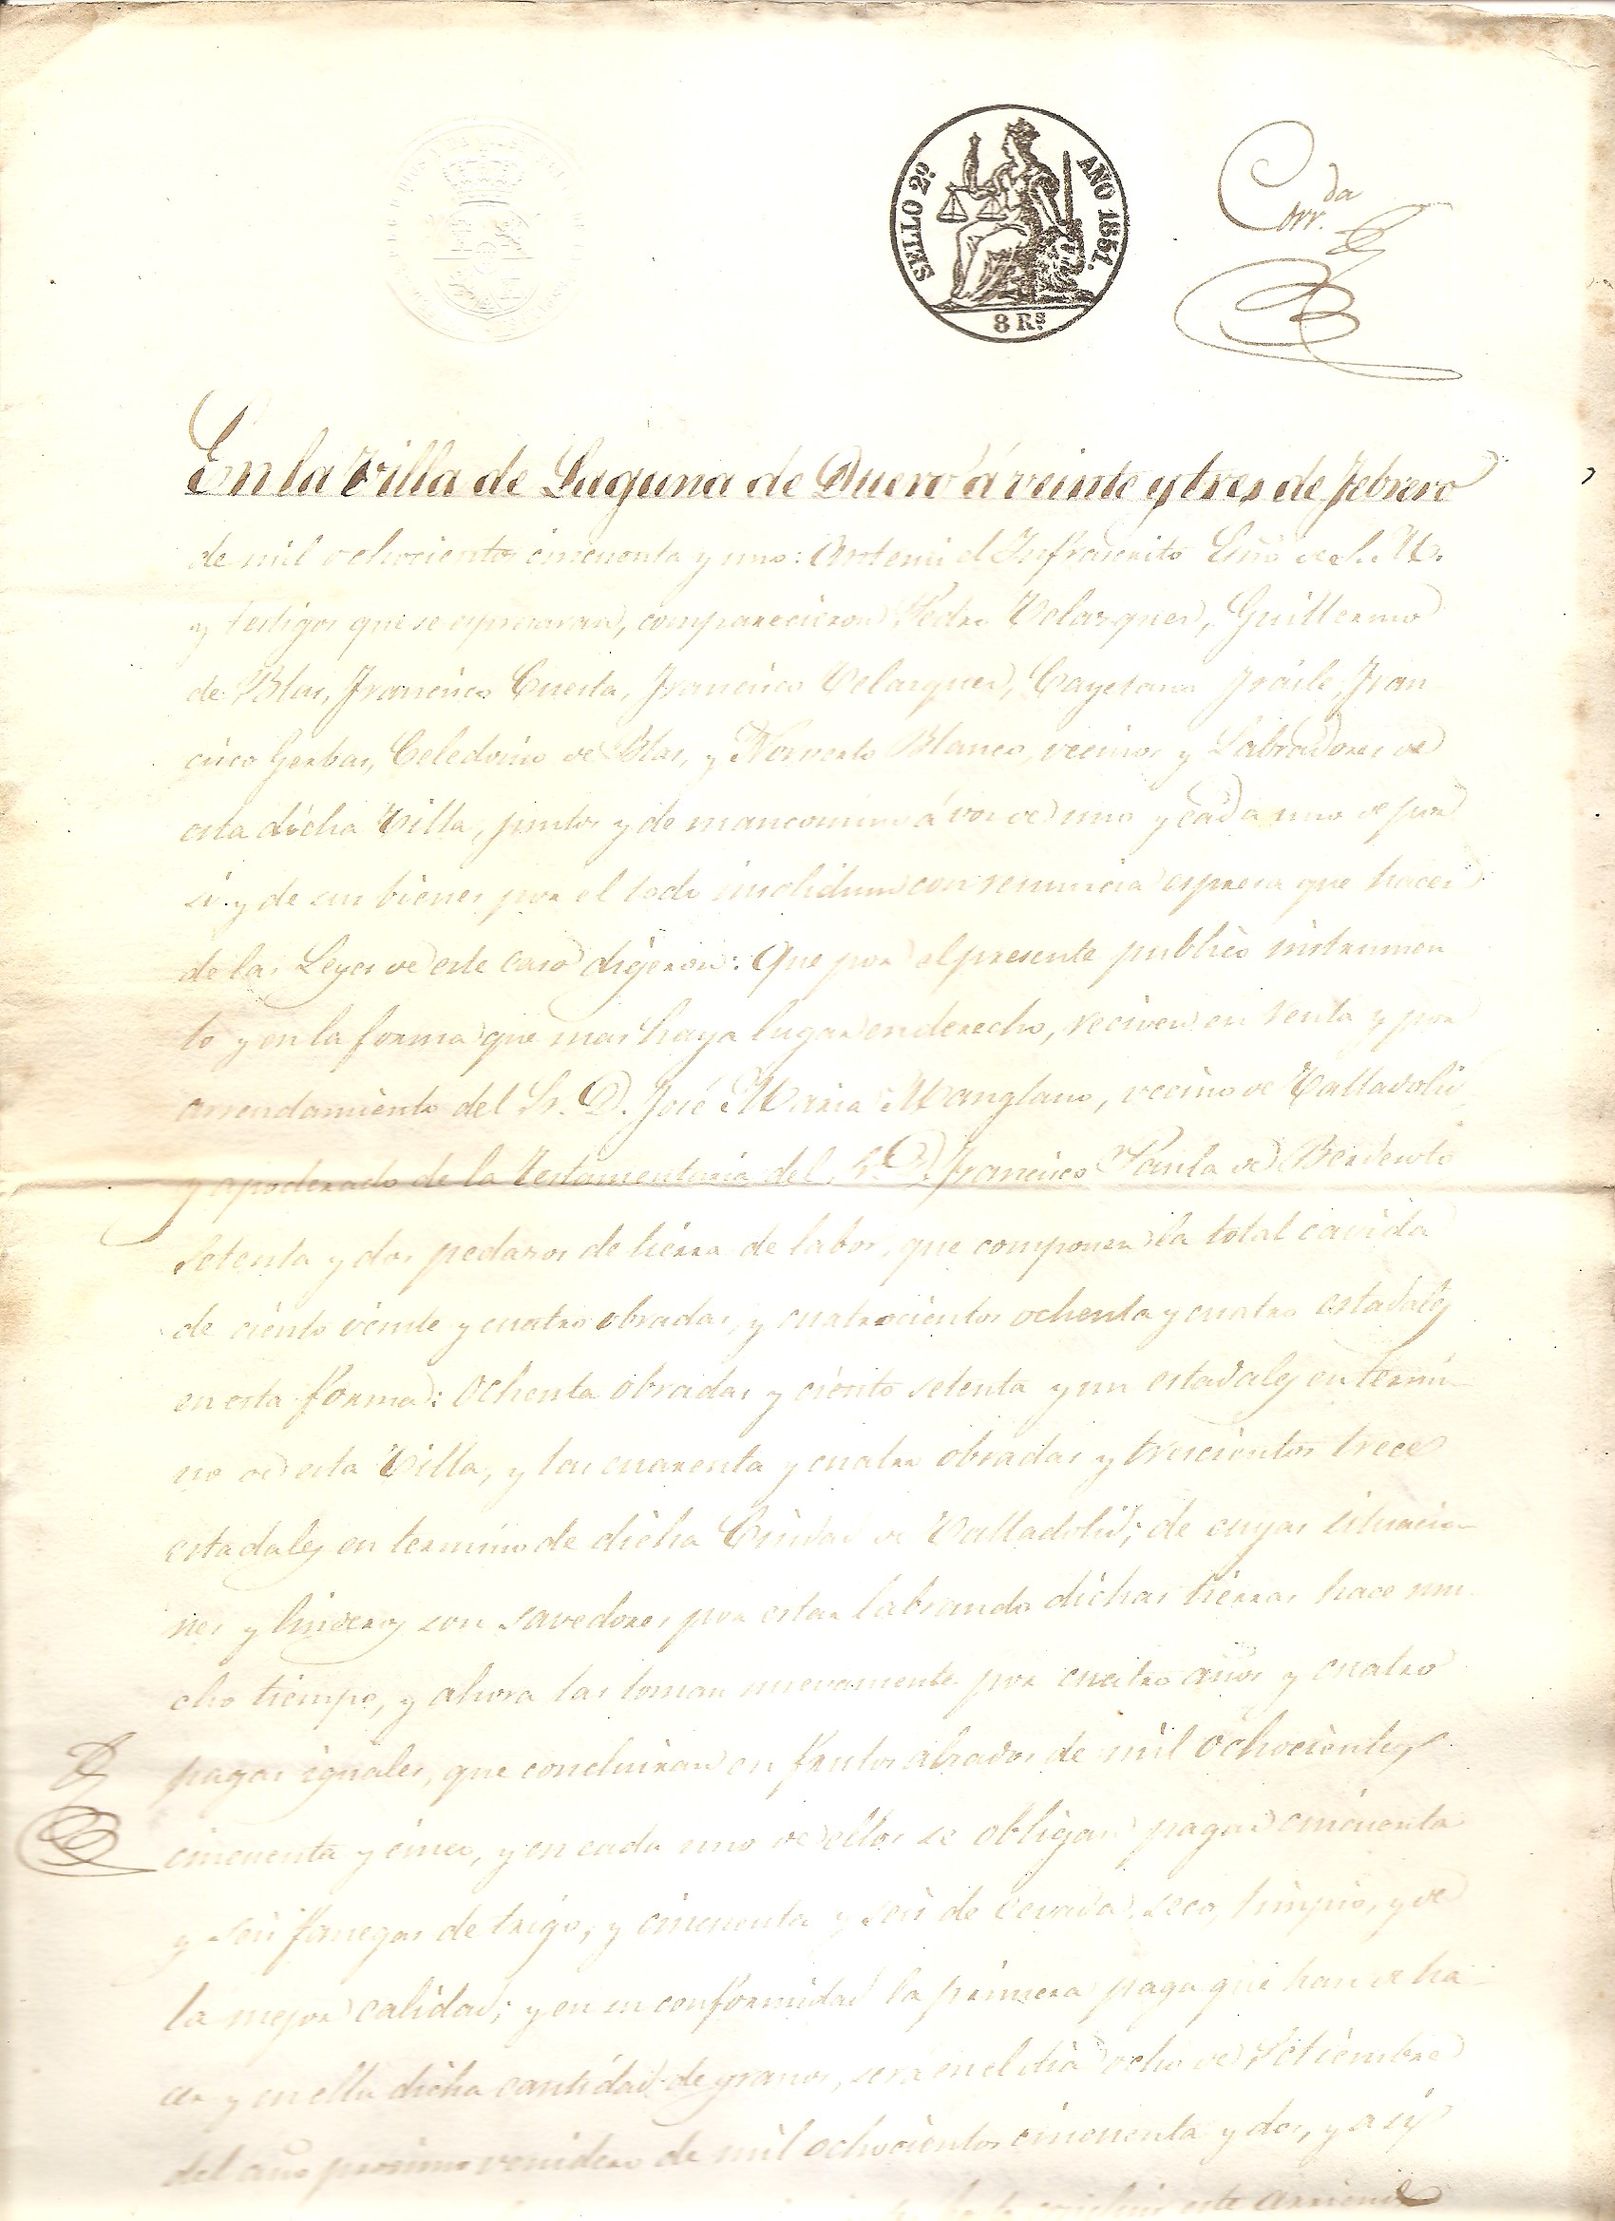 SELLO 2º AÑO 1851.
8 Rs
Corr.da
En la Villa de Laguna de Duero á veinte y tres de febrero
de mil ochocientos cincuenta y uno: Ante mi el Infrascrito Esno de S. M.
y testigos que se espresaran, comparecieron Pedro Velazquez, Guillermo
de Blas, Francisco Cuesta, Francisco Velazquez, Cayetano Fraile, Fran
cisco Celedonio de Blas, y Norverto Blanco, vecinos y Labradores de
esta dicha Villa, juntos y de mancomun á voz de uno y cada uno de por
si y de sus bienes por el todo insolidum con renuncia espresa que hacen
de las Leyes de este caso digeron: Que por el presente publico instrumen
to y en la forma que mas haya lugar en derecho, reciven en renta y por
arrendamiento del Sr. D. José Maria Manglano, vecino de Valladolid
y apoderado de la Testamentaria del Sr. D. Francisco Paula de
setenta y dos pedazos de tierra de labor, que componen la total cavida
de ciento veinte y cuatro obradas, y cuatrocientos ochenta y cuatro estadales
en esta forma: Ochenta obradas y ciento setenta y un estadales en termi
no de esta Villa, y las cuarenta y cuatro obradas y trescientos trece
estadales en termino de dicha Ciudad de Valladolid; de cuyas situacio
nes y linderos son savedores por estar labrando dichas tierras hace mu
cho tiempo, y ahora las toman nuevamente por cuatro años y cuatro
pagas iguales, que concluiran en frutos alzados de mil ochocientos
cincuenta y cinco, y en cada uno de ellos se obligan pagar cincuenta
y seis fanegas de trigo, y cincuenta y seis de cevada, seco, limpio, y de
la mejor calidad; y en su conformidad la primera paga que han de ha
cer y en ella dicha cantidad de granos, será en el dia ocho de Setiembre
del año procsimo venidero de mil ochocientos cincuenta y dos, y asi
concluir este arriendo